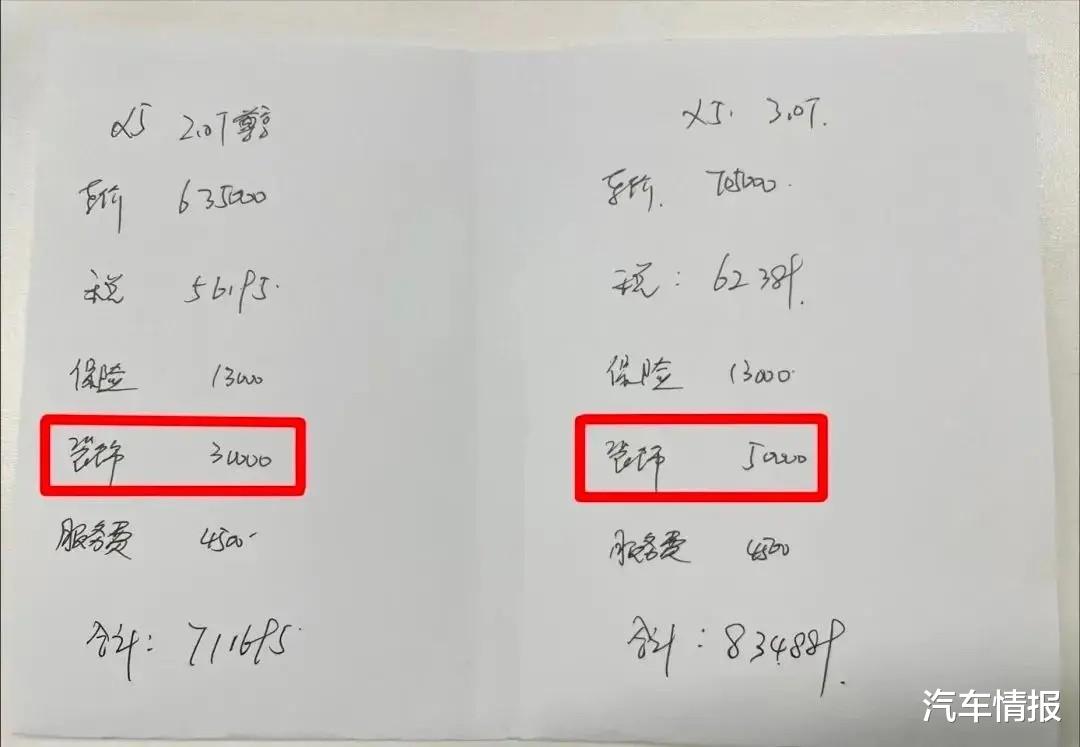 X5 2.0T 尊享
车价 635000
税 56195.
保险 13000
装饰 30000
服务费 4500
合计: 711695
X5. 3.0T.
车价. 705000.
税: 62389.
保险 13000.
装饰 50000
服务费 4500
合计: 834889.
汽车情报